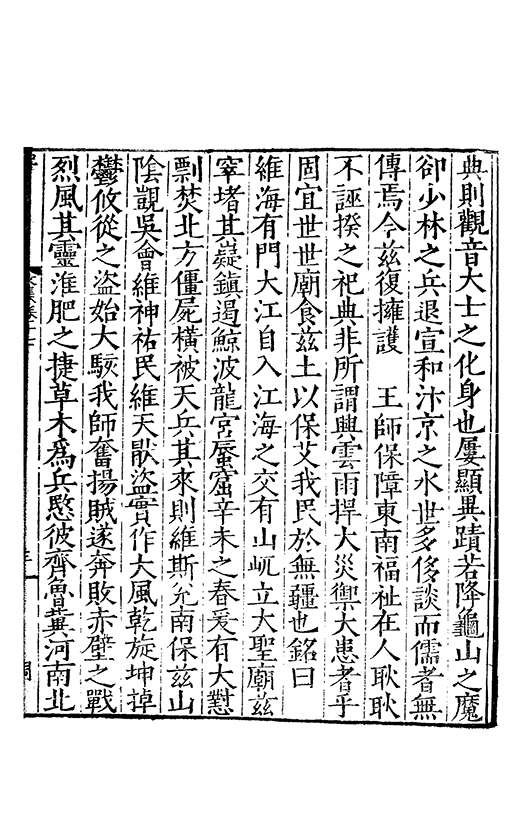 典則觀音大士之化身也屢顯異蹟若降龜山之魔
卻少林之兵退宣和汴京之水世多侈談而儒者無
傳焉今茲復擁護　王師保障東南福祉在人耿耿
不誣揆之祀典非所謂興雲雨捍大災禦大患者乎
固宜世世廟食茲土以保艾我民於無疆也銘曰
維海有門大江自入江海之交有山屹立大聖廟茲
窣堵其嶷鎮遏鯨波龍宮蜃窟辛未之春爰有大懟
剽焚北方僵屍橫被天兵其來則維斯允南保茲山
陰觀吳會維神祐民維天猒盜實作大風乾旋坤掉
鬱攸從之盜始大駭我師奮揚賊遂奔敗赤壁之戰
烈風其靈淮肥之捷草木為兵愍彼齊魯冀河南北